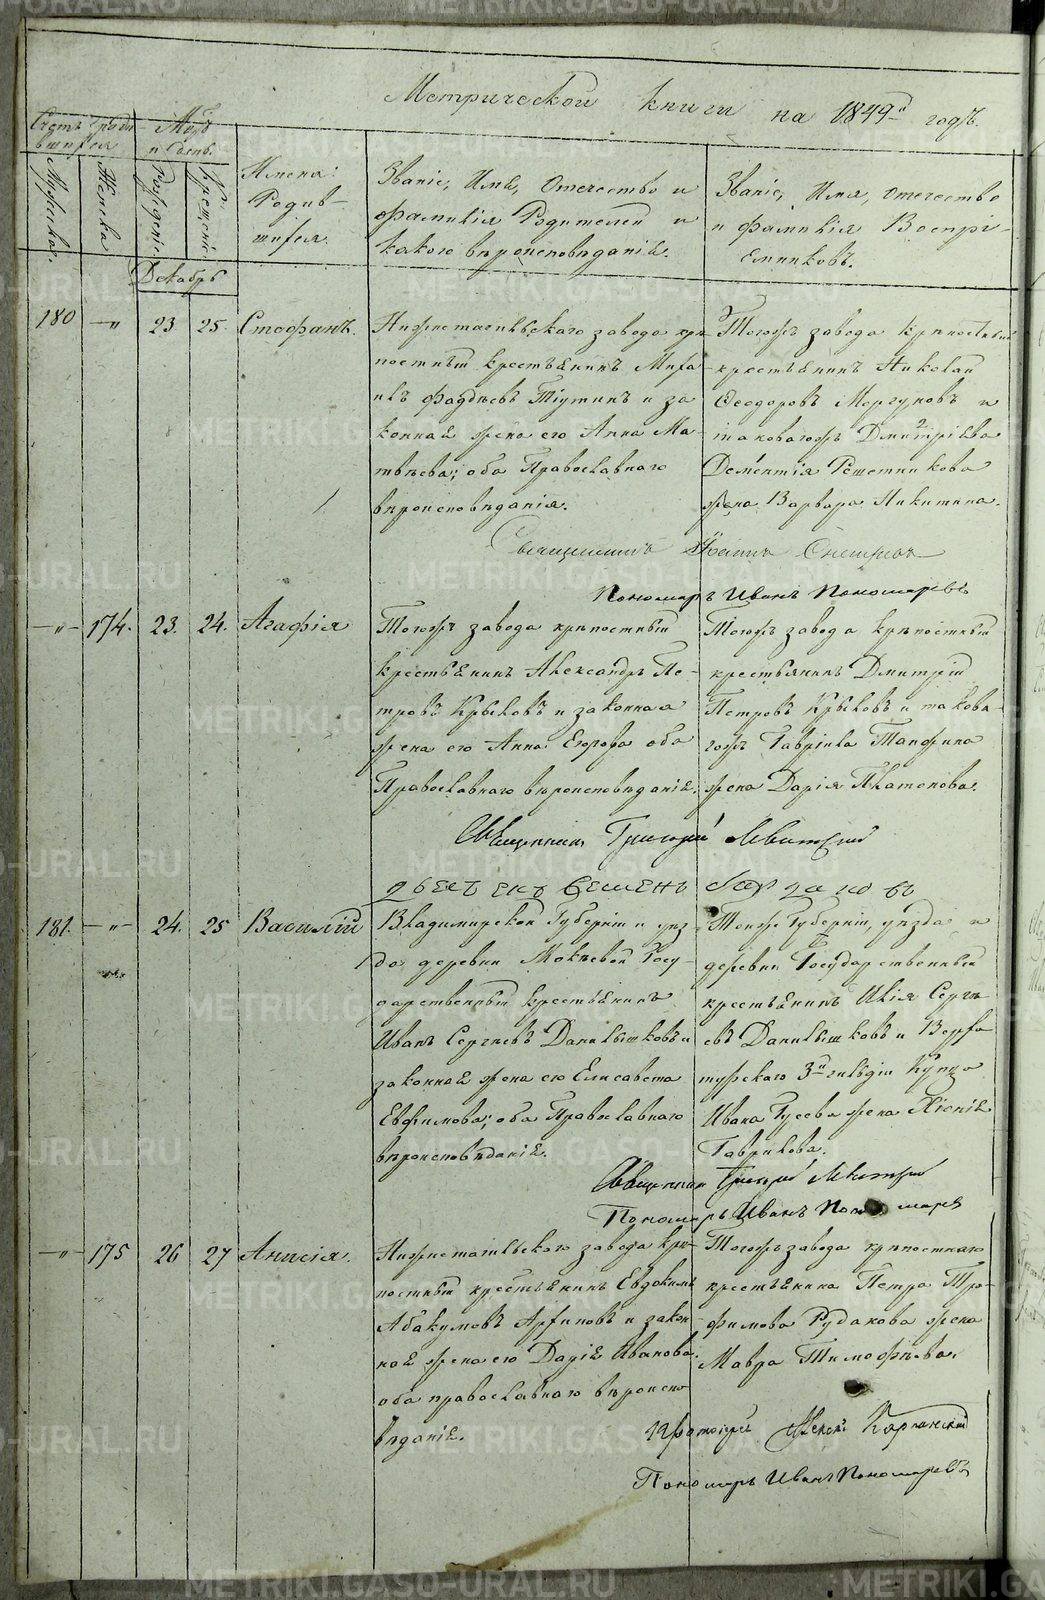 Метрической книги на 1849й годъ.
Счетъ родившихся
Мужеска.
Женска
Мѣсъ и день.
Рожденiе
Крещенiе
Имена Родившихся.
Званiе, Имя, Отечество и
фамилiя Родителей и
какого вѣроисповѣданiя.
Званiе, Имя, отечество
и фамилiя Воспрi-
емниковъ.
Декабрь
180 —„ 23 25. Стефанъ.
Нижнетагильскаго завода крѣ-
постный крестьянинъ Миха-
илъ Фаддѣевъ Тiутинъ и за
конная жена его Анна Ма-
твѣева; оба Православнаго
вѣроисповѣданiя.
Тогожъ завода крѣпостный
крестьянинъ Николай
Ѳеодоровъ Моргуновъ и
таковагожъ Дмитрiева
Дементiя Решетникова
жена Варвара Никитина.
Священникъ Iоаннъ
Пономарь Иванъ Пономаревъ
—„— 174. 23. 24. Агафiя
Тогожъ завода крѣпостный
крестьянинъ Александръ Пе-
тровъ Крыковъ и законная
жена его Анна Егорова оба
Православнаго вѣроисповѣданiя.
Тогожъ завода крѣпостный
крестьянинъ Дмитрiй
Петровъ Крыковъ и такова-
гожъ Гаврiила
жена Дарiя Платонова.
Священникъ Григорiй Левитскiй
Семенъ
181. —„— 24. 25 Василiй
Владимирской Губернiи и уѣз-
да деревни Мокѣевой Госу-
дарственный крестьянинъ
Иванъ Сергѣевъ Данилышковъ и
законная жена его Елисавета
Евфимова; оба Православнаго
вѣроисповѣданiя.
Тойже Губернiи, уѣзда и
деревни Государственный
крестьянинъ Илiя Сергѣ-
евъ Данилышковъ и Верхо
турскаго 3й гильдiи Купца
Ивана Гусева жена Ксенiя
Гаврилова.
Священникъ Григорiй Левитскiй
Пономарь Иванъ Пономаревъ
—„— 175 26 27 Анисiя.
Нижнетагильскаго завода крѣ-
постный крестьянинъ Евдокимъ
Абакумовъ Архиповъ и закон-
ная жена его Дарiя Иванова.
оба православнаго вѣроиспо
вѣданiя.
Тогожъ завода крѣпостнаго
крестьянина Петра Тро-
фимова Рудакова жена
Мавра Тимофѣева.
Протоiерей Алексiй Карпинскiй
Пономарь Иванъ Пономаревъ
METRIKI.GASO-URAL.RU